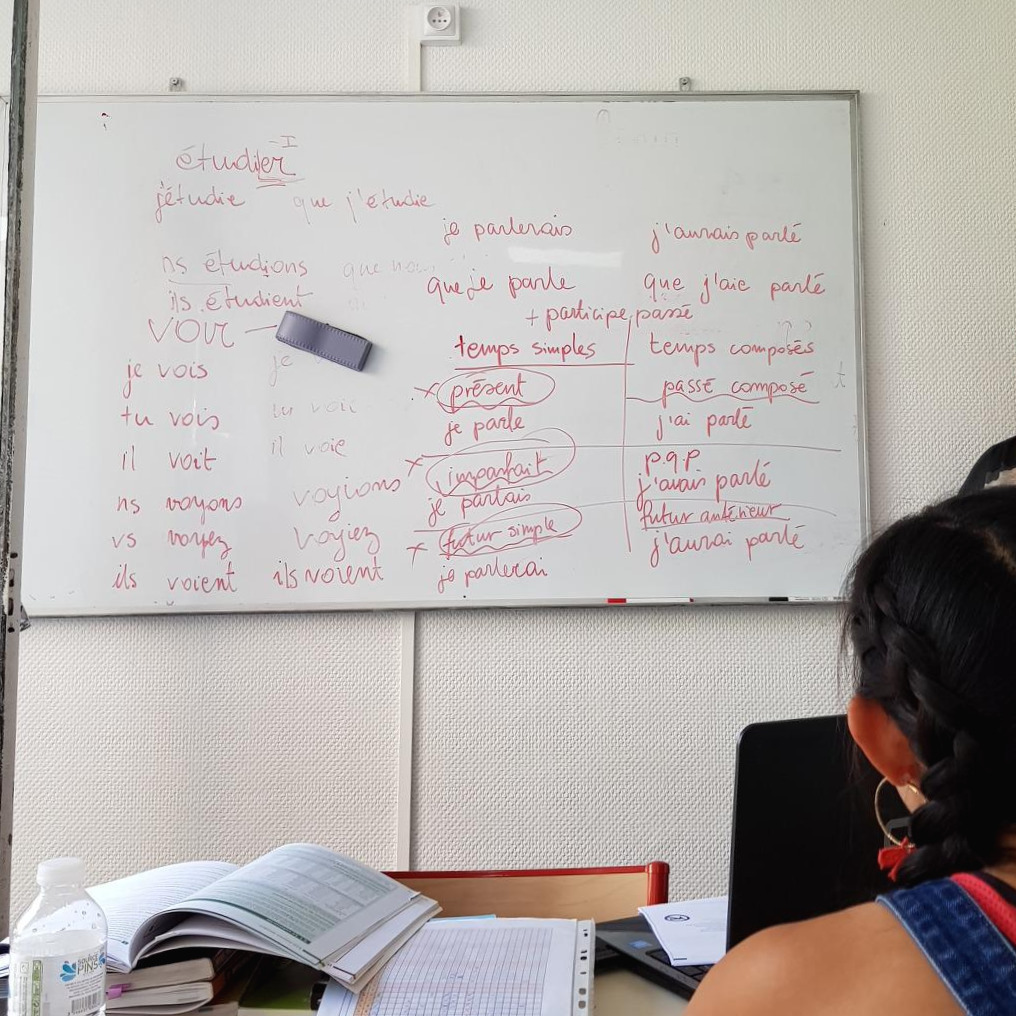 étudier - I
j'étudie que j'étudie
ns étudions que nous
ils étudient
VOIR
je vois je
tu vois tu voi
il voit il voie
ns voyons voyions
vs voyez voyiez
ils voient ils voient
je parlerais j'aurais parlé
que je parle que j'aie parlé
+ participe passé
temps simples temps composés
x présent passé composé
je parle j'ai parlé
x imparfait p.q.p
je parlais j'avais parlé
x futur simple futur antérieur
je parlerai j'aurai parlé
t
SOURCE
PINS